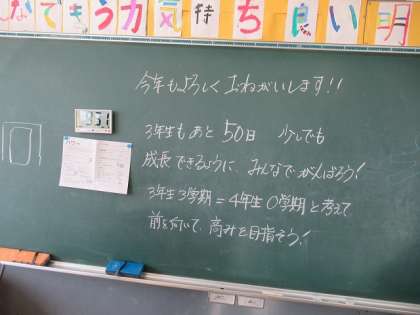 なできう力気持ち良い明
今年もよろしくおねがいします!!
3年生もあと50日 少しでも
成長できるように、みんなでがんばろう!
3年生3学期=4年生0学期と考えて
前を向いて、高みを目指そう!